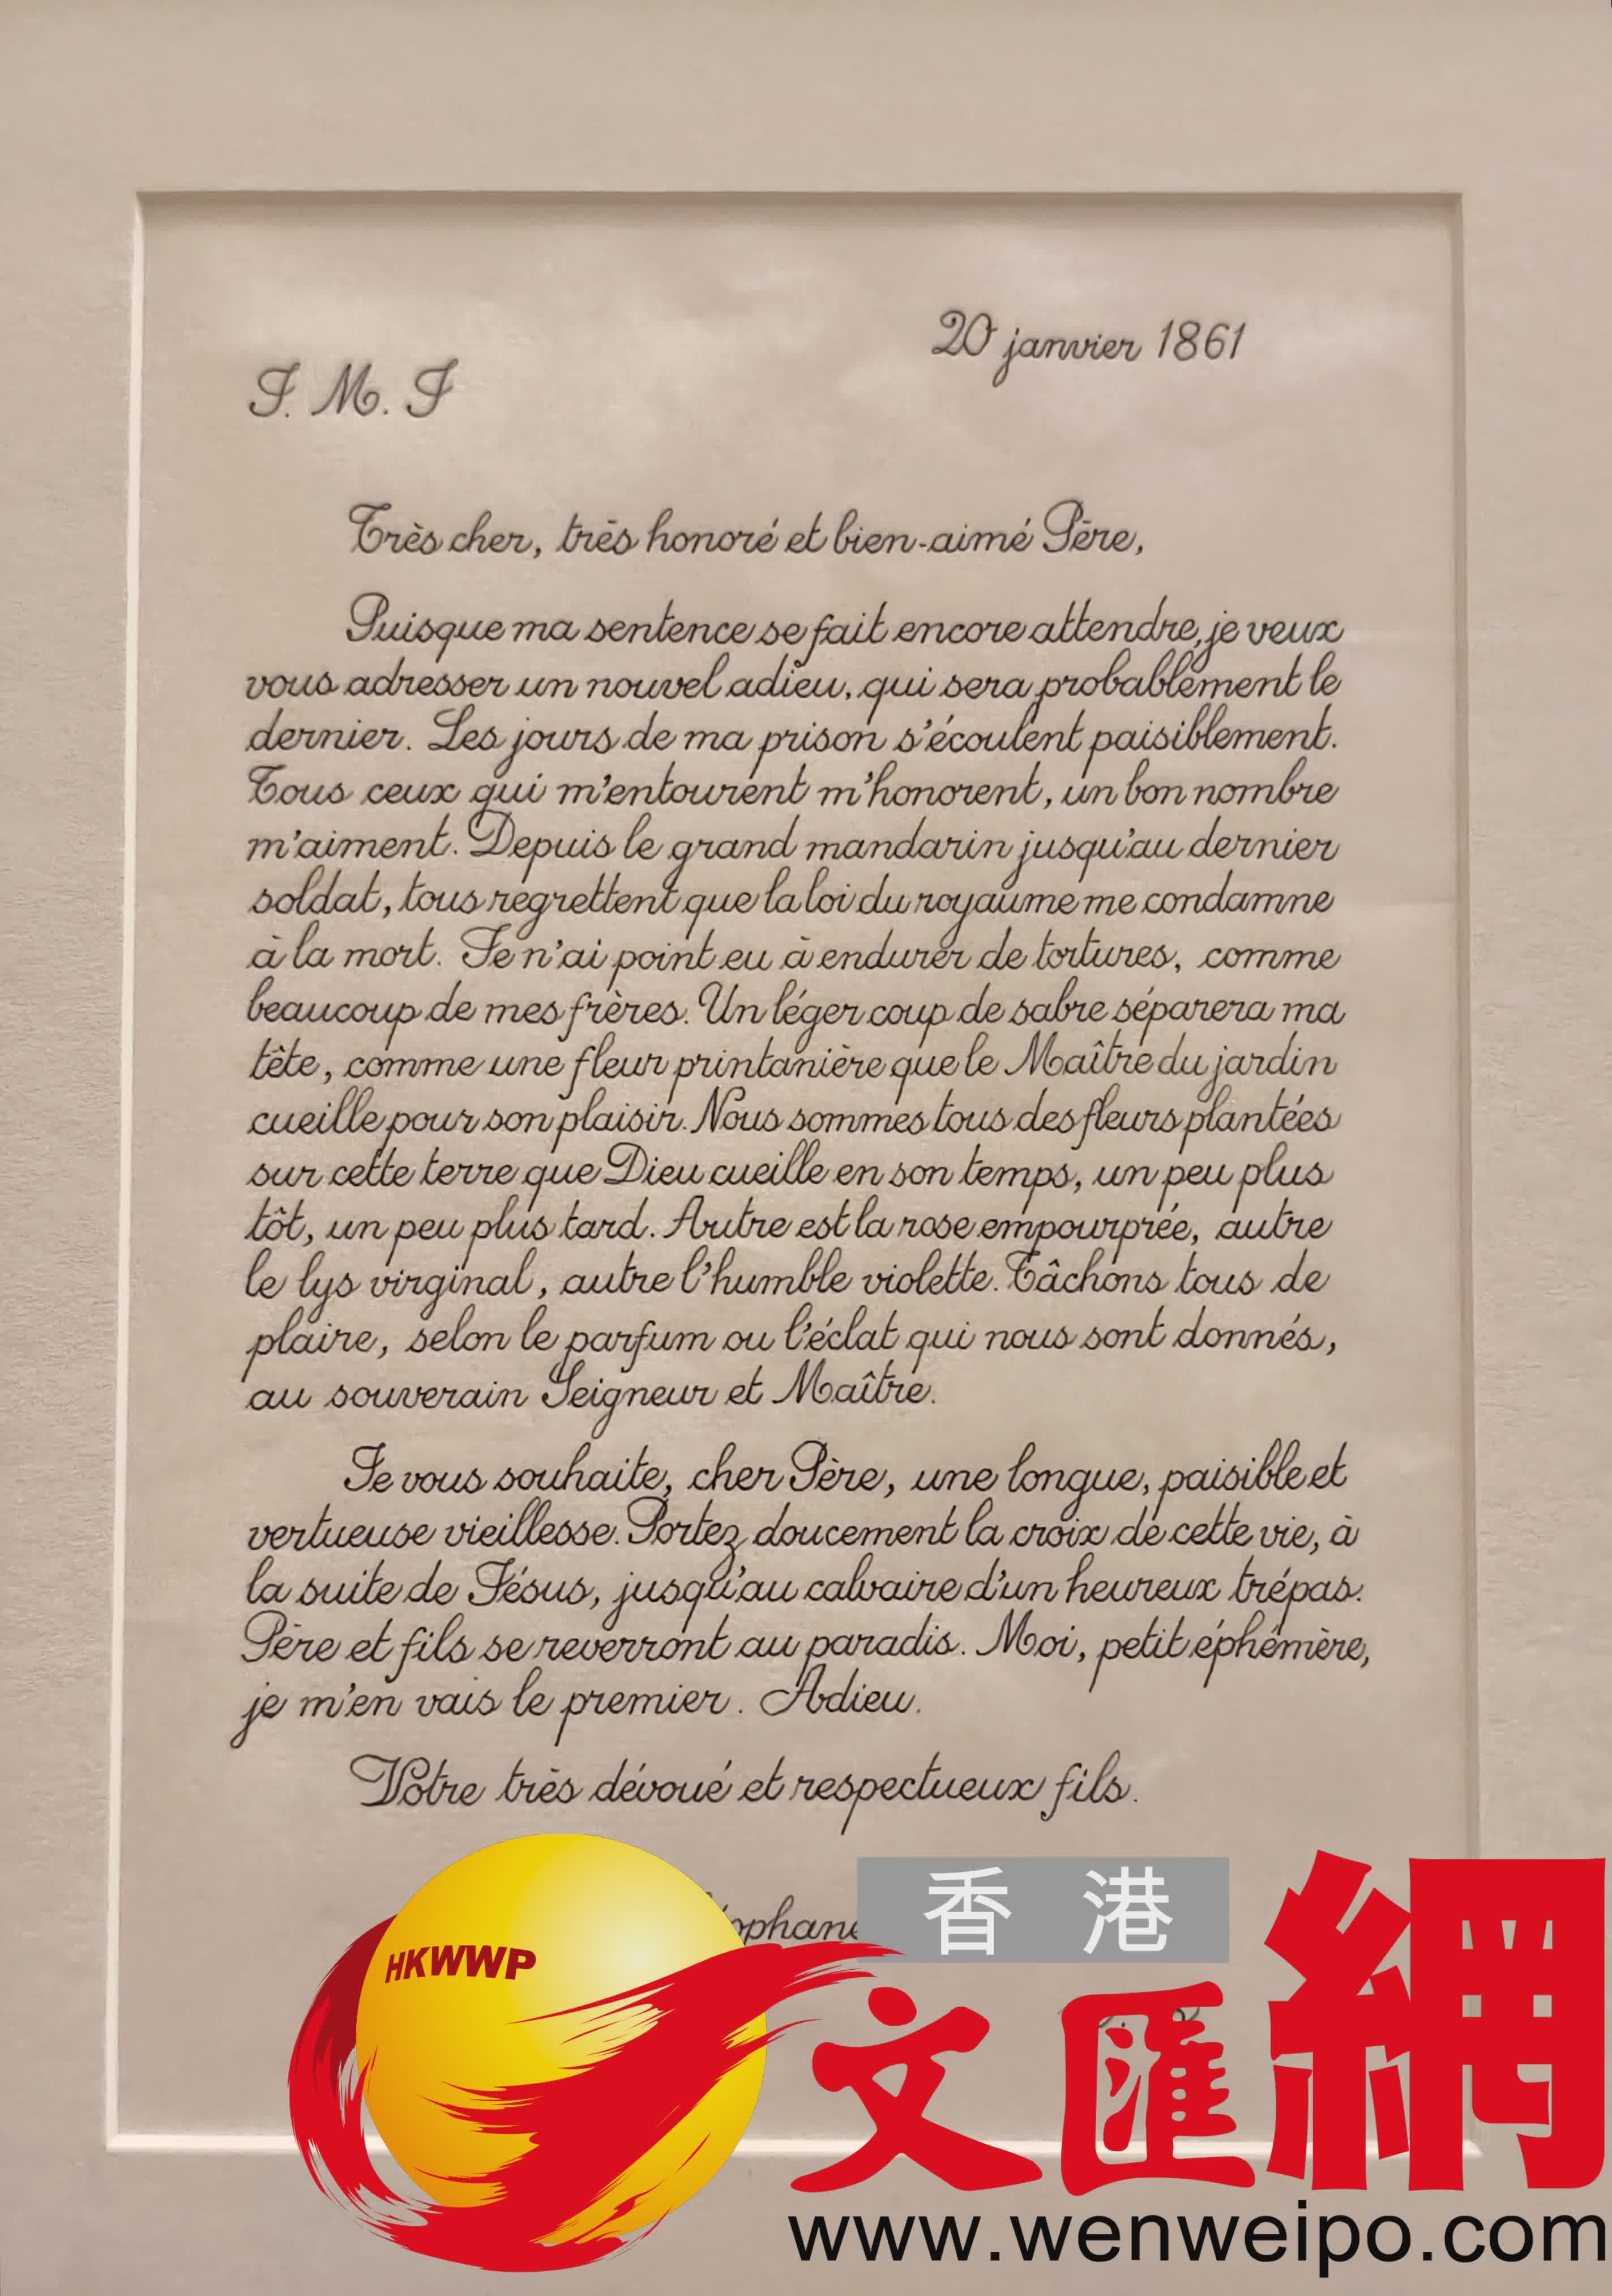 20 janvier 1861
J. M. J
Très cher, très honoré et bien-aimé Père,
Puisque ma sentence se fait encore attendre, je veux
vous adresser un nouvel adieu, qui sera probablement le
dernier. Les jours de ma prison s'écoulent paisiblement.
Tous ceux qui m'entourent m'honorent, un bon nombre
m'aiment. Depuis le grand mandarin jusqu'au dernier
soldat, tous regrettent que la loi du royaume me condamne
à la mort. Je n'ai point eu à endurer de tortures, comme
beaucoup de mes frères. Un léger coup de sabre séparera ma
tête, comme une fleur printanière que le Maître du jardin
cueille pour son plaisir. Nous sommes tous des fleurs plantées
sur cette terre que Dieu cueille en son temps, un peu plus
tôt, un peu plus tard. Autre est la rose empourprée, autre
le lys virginal, autre l'humble violette. Tâchons tous de
plaire, selon le parfum ou l'éclat qui nous sont donnés,
au souverain Seigneur et Maître.
Je vous souhaite, cher Père, une longue, paisible et
vertueuse vieillesse. Portez doucement la croix de cette vie, à
la suite de Jésus, jusqu'au calvaire d'un heureux trépas.
Père et fils se reverront au paradis. Moi, petit éphémère,
je m'en vais le premier. Adieu.
Votre très dévoué et respectueux fils.
香港
HKWWP
文匯網
www.wenweipo.com